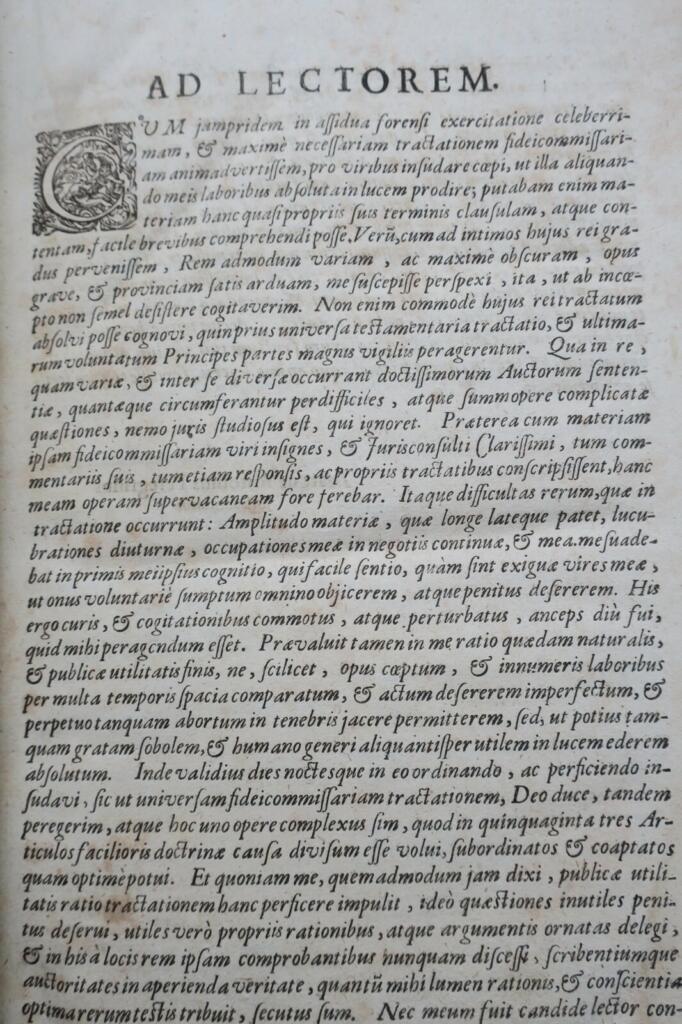 AD LECTOREM.
CUM jampridem in assidua forensi exercitatione celeberri-
mam, & maximè necessariam tractationem fideicommissari-
am animadvertissem, pro viribus insudare cœpi, ut illa aliquan-
do meis laboribus absoluta in lucem prodire; putabam enim ma-
teriam hanc quasi propriis suis terminis clausulam, atque con-
tentam, facile brevibus comprehendi posse, Verũ, cum ad intimos hujus rei gra-
dus pervenissem, Rem admodum variam, ac maximè obscuram, opus
grave, & provinciam satis arduam, me suscepisse perspexi, ita, ut ab incœ-
pto non semel desistere cogitaverim. Non enim commodè hujus rei tractatum
absolvi posse cognovi, quin prius universa testamentaria tractatio, & ultima-
rum voluntatum Principes partes magnis vigiliis peragerentur. Qua in re,
quam variæ, & inter se diversæ occurrant doctissimorum Auctorum senten-
tiæ, quantæque circumferantur perdifficiles, atque summopere complicatæ
quæstiones, nemo juris studiosus est, qui ignoret. Præterea cum materiam
ipsam fideicommissariam viri insignes, & Jurisconsulti Clarissimi, tum com-
mentariis suis, tum etiam responsis, ac propriis tractatibus conscripsissent, hanc
meam operam supervacaneam fore ferebar. Itaque difficultas rerum, quæ in
tractatione occurrunt: Amplitudo materiæ, quæ longe lateque patet, lucu-
brationes diuturnæ, occupationes meæ in negotiis continuæ, & mea. me suade-
bat in primis meiipsius cognitio, qui facile sentio, quàm sint exiguæ vires meæ,
ut onus voluntariè sumptum omnino objicerem, atque penitus desererem. His
ergo curis, & cogitationibus commotus, atque perturbatus, anceps diù fui,
quid mihi peragendum esset. Prævaluit tamen in me ratio quædam naturalis,
& publicæ utilitatis finis, ne, scilicet, opus cœptum, & innumeris laboribus
per multa temporis spacia comparatum, & actum desererem imperfectum, &
perpetuo tanquam abortum in tenebris jacere permitterem, sed, ut potius tam-
quam gratam sobolem, & humano generi aliquantisper utilem in lucem ederem
absolutum. Inde validius dies noctesque in eo ordinando, ac perficiendo in-
sudavi, sic ut universam fideicommissariam tractationem, Deo duce, tandem
peregerim, atque hoc uno opere complexus sim, quod in quinquaginta tres Ar-
ticulos facilioris doctrinæ causa divisum esse volui, subordinatos & coaptatos
quam optimè potui. Et quoniam me, quemadmodum jam dixi, publicæ utili-
tatis ratio tractationem hanc perficere impulit, ideò quæstiones inutiles peni-
tus deserui, utiles verò propriis rationibus, atque argumentis ornatas delegi,
& in his à locis rem ipsam comprobantibus nunquam discessi, scribentiumque
auctoritates in aperienda veritate, quantũ mihi lumen rationis, & conscientia
optima rerum testis tribuit, secutus sum. Nec meum fuit candide lector con-